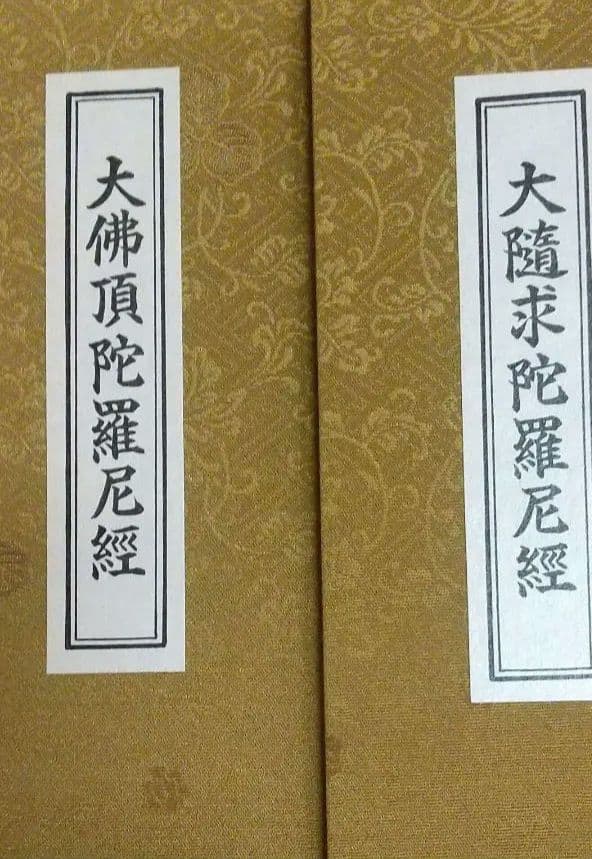 大佛頂陀羅尼經
大隨求陀羅尼經